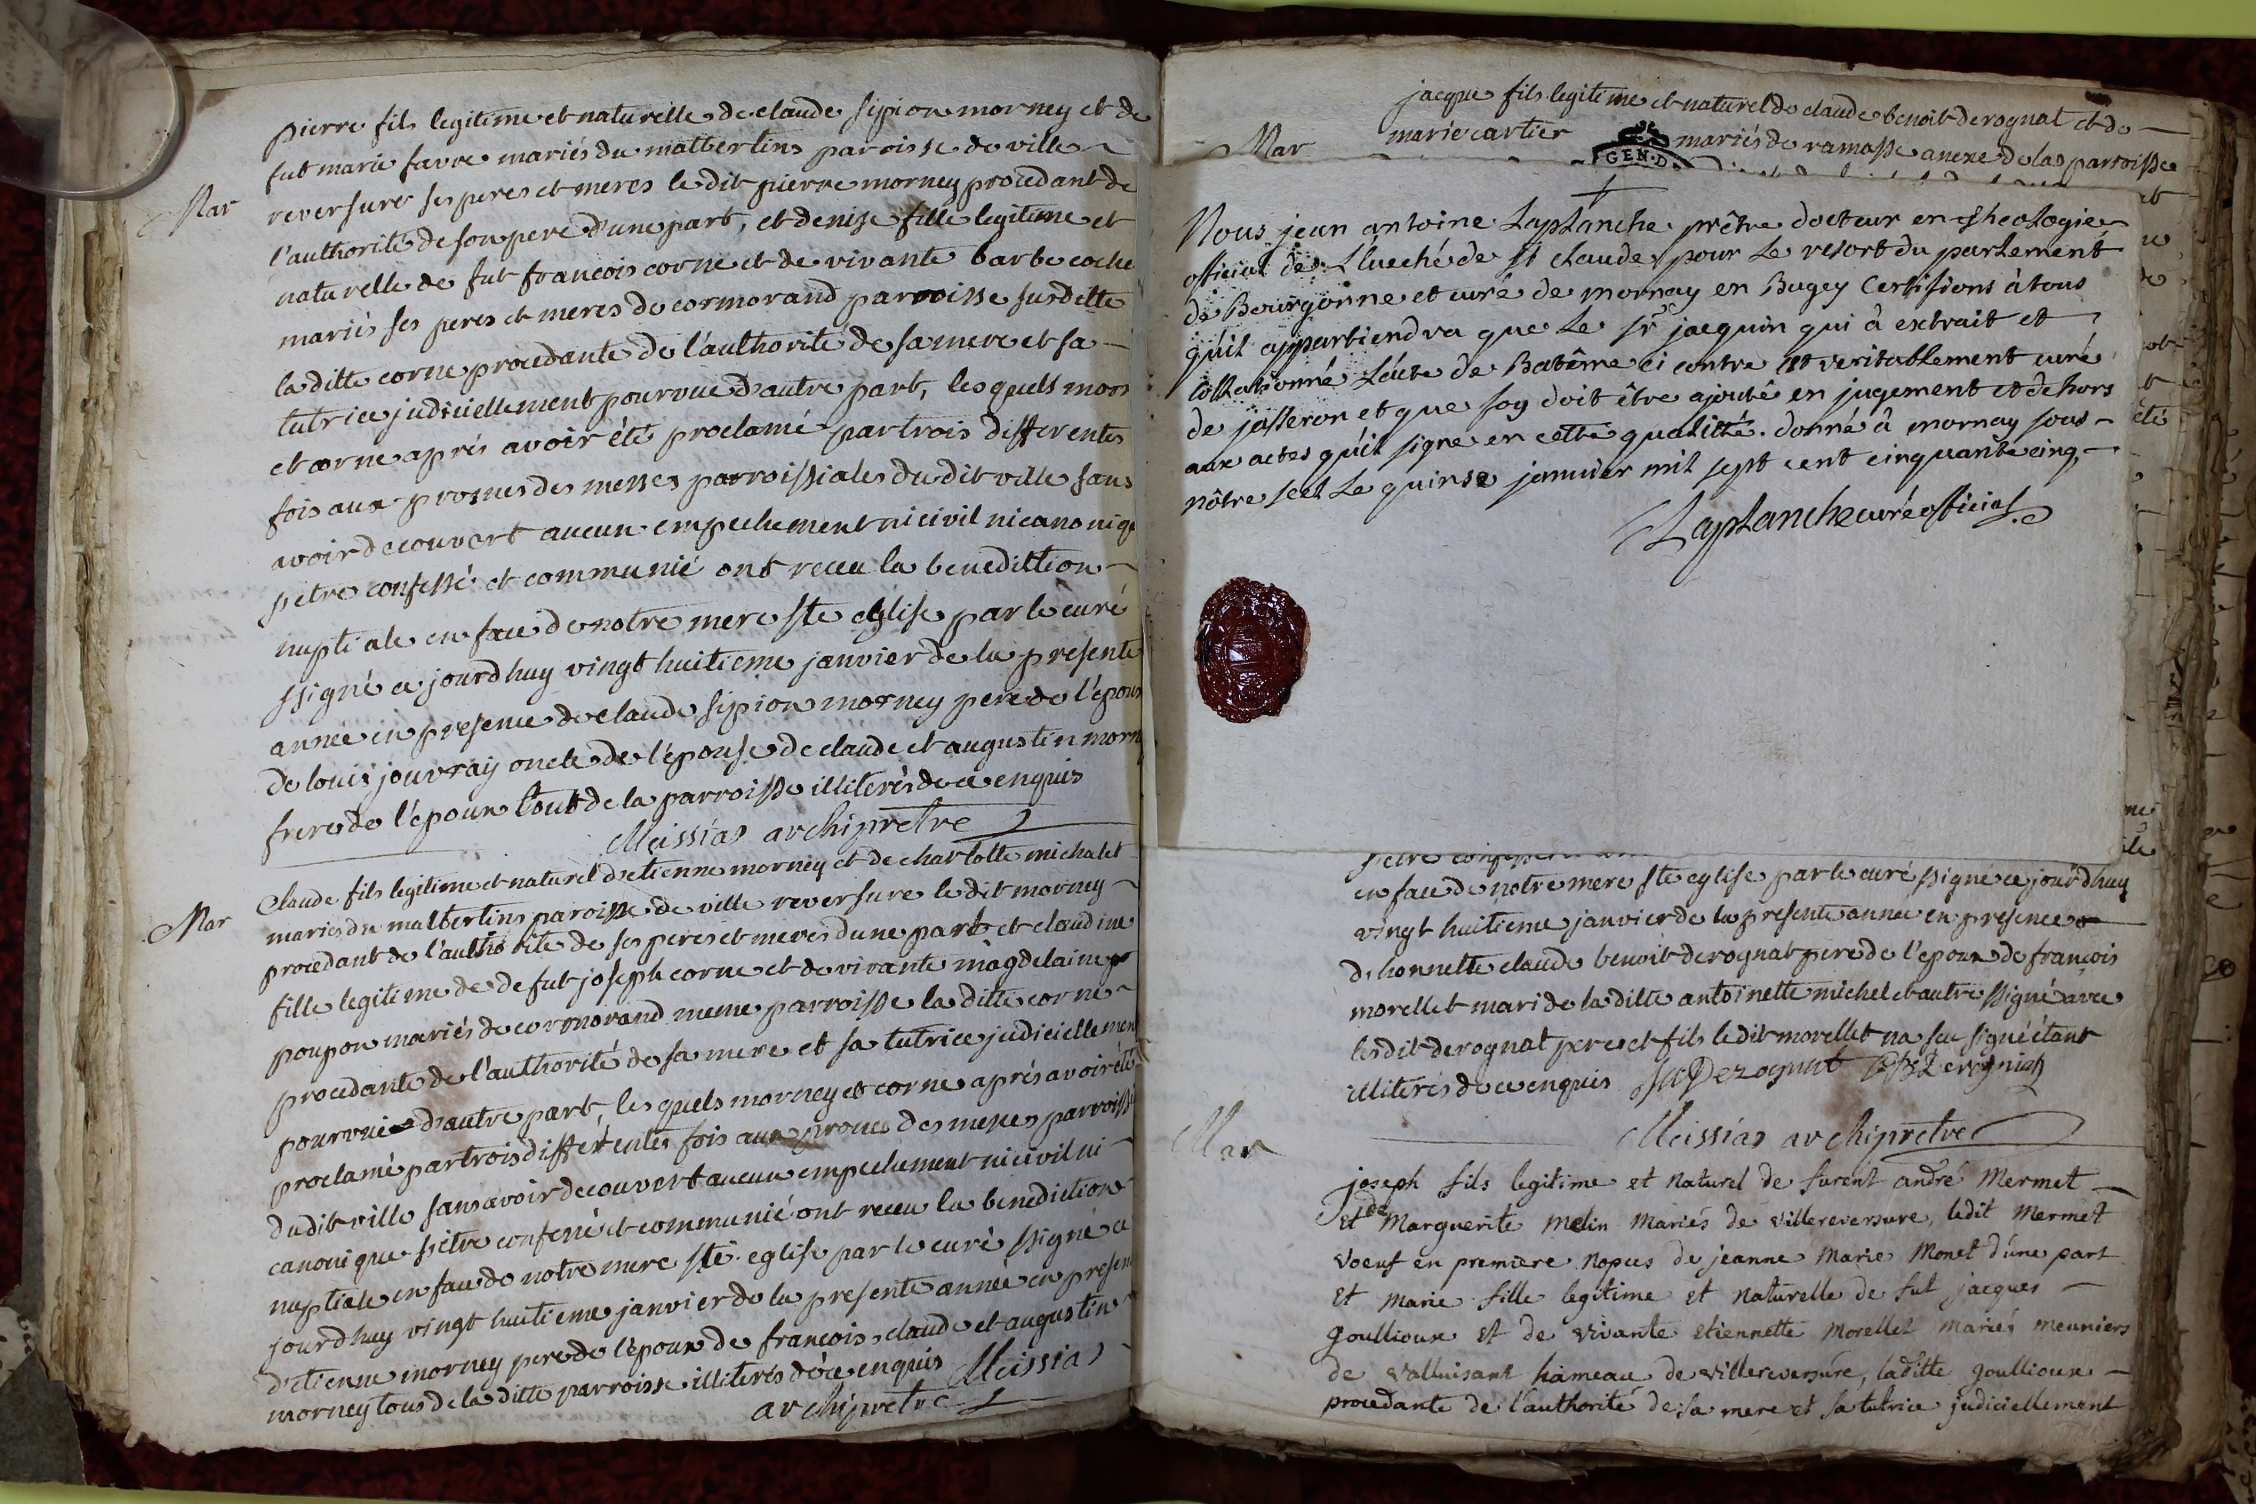 pierre fils legitime et naturelle de claude sipion morney et de
fut marie favre mariés du malbertins paroisse de ville
Mar
reversure ses peres et meres le dit pierre morney procedant de
l'authorité de son pere d'une part, et denize fille legitime et
naturelle de fut francois corne et de vivante barbe coche
mariés ses peres et meres de cormorand parroisse susditte
la ditte corne procedante de l'authorité de sa mere et sa
tutrice judiciellement pourvue d'autre part, les quels mor
et corne aprés avoir été proclamé par trois differentes
fois aux prosnes des messes parroissiales du dit ville sans
avoir decouvert aucun empechement ni civil ni canoniq
s'etre confessé et communié ont receu la benedittion
nuptiale en face de notre mere ste eglise par le curé
ssigné ce jourdhuy vingt huitieme janvier de la presente
année en presence de claude sipion morney pere de l'epoux
de louis jouvray oncle de l'epouse de claude et augustin morn
frere de l'epoux tous de la parroisse illiterés de ce enquis
Meissias archiprêtre
Claude fils legitime et naturel d'etienne morney et de charlotte michalet
Mar
mariés du malbertins paroisse de ville reversure le dit morney
procedant de l'authorité de ses peres et meres d'une part et claudine
fille legitime de defut joseph corne et de vivante magdelaine
poupon mariés de cormorand meme parroisse la ditte corne
procedante de l'authorité de sa mere et sa tutrice judiciellemen
pourvuë d'autre part, les quels morney et corne aprés avoir été
proclamé par trois differentes fois aux prones des messes parroissi
du dit ville sans avoir decouvert aucun empechement ni civil ni
canonique s'etre confessé et communié ont receu la benediction
nuptiale en face de notre mere ste eglise par le curé ssigné ce
jourdhuy vingt huitieme janvier de la presente année en presen
d'etienne morney pere de l'epoux de francois, claude et augustin
morney tous de la ditte parroisse illiterés de ce enquis Meissias
archiprêtre
jacque fils legitime et naturel de claude benoit derognat et de
Mar
marie cartier mariés de ramasse anexe de la parroisse
GEN. D
Nous jean antoine Laplanche prêtre docteur en theologie
official de l'Eveché de st claude pour le resort du parlement
de Bourgonne et curé de mornay en Bugey Certifions à tous
qu'il appartiendra que le sr jacquin qui à extrait et
collationné l'acte de Batême ci contre est veritablement curé
de jasseron et que foy doit être ajoutê en jugement et dehors
aux actes qu'il signe en cette qualitté. donné à mornay sous
nôtre scel le quinse janvier mil sept cent cinquante cinq
Laplanche curé official
en face de notre mere ste eglise par le curé ssigné ce jourdhuy
vingt huitieme janvier de la presente année en presence
d'honnette claude benoit derognat pere de l'epoux de françois
morellet mari de la ditte antoinette michel et autre ssigné avec
lesdit derognat pere et fils le dit morellet na sçu signé étant
illiterés de ce enquis J Derognat
Meissias archiprêtre
Mar
joseph fils legitime et naturel de furent andré Mermet
et de Marguerite Melin mariés de villereversure, ledit Mermet
voeuf en premiere nopces de jeanne Marie Monet d'une part
et Marie fille legitime et naturelle de fut jacques
goullioux et de vivante etiennette Morellet mariés meuniers
de valluisant hameau de villereversure, laditte goullioux
procedante de l'authorité de sa mere et sa tutrice judiciellement